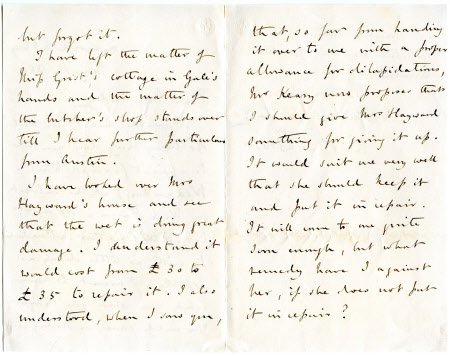 but forgot it.
I have left the matter of
Miss Grist's cottage in Gale's
hands and the matter of
the butcher's shop stands over
till I hear further particulars
from Austin.
I have looked over Mrs
Hayward's house and see
that the wet is doing great
damage. I understand it
would cost from £30 to
£35 to repair it. I also
understood, when I saw you,
that, so far from handing
it over to me with a proper
allowance for dilapidations,
Mr Keary now proposes that
I should give Mrs Hayward
something for giving it up.
It would suit me very well
that she should keep it
and put it in repair.
It will come to me quite
soon enough, but what
remedy have I against
her, if she does not put
it in repair?